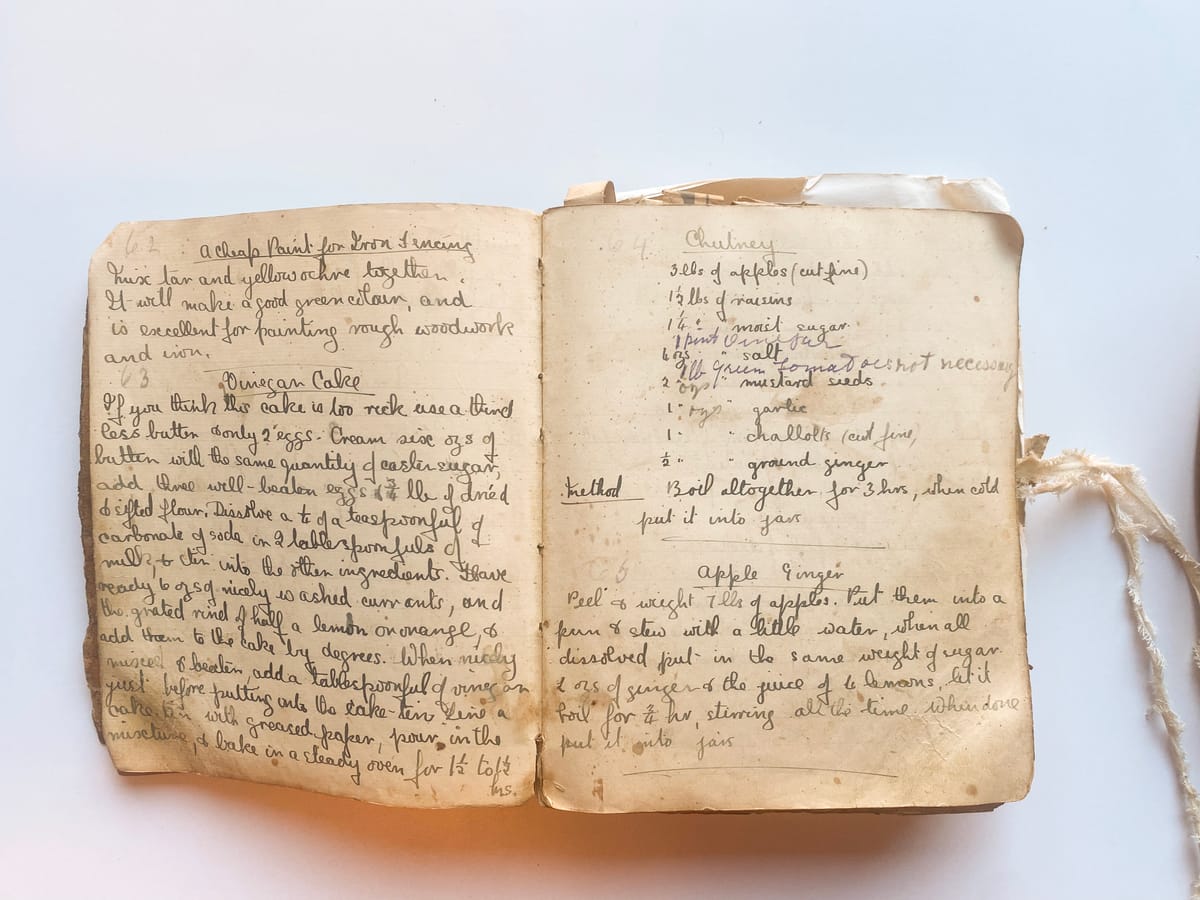 62
A cheap Paint for Iron Fencing
Mix tar and yellow ochre together.
It will make a good green colour, and
is excellent for painting rough woodwork
and iron.
63
Vinegar Cake
If you think this cake is too rich use a third
less butter & only 2 eggs. Cream six ozs of
butter with the same quantity of caster sugar,
add three well-beaten eggs & 3/4 lb of dried
& sifted flour. Dissolve a 1/2 of a teaspoonful of
carbonate of soda in 2 tablespoonfuls of
milk, & stir into the other ingredients. Have
ready 6 ozs of nicely washed currants, and
the grated rind of half a lemon or orange, &
add them to the cake by degrees. When nicely
mixed & beaten, add a tablespoonful of vinegar
just before putting into the cake-tin. Line a
cake tin with greased paper, pour in the
mixture, & bake in a steady oven for 1 1/4 to 1 1/2
hrs.
64
Chutney
3 lbs of apples (cut fine)
1 1/2 lbs of raisins
1 1/4 " moist sugar.
1 pint Vinegar
4 ozs " salt
1 lb Green Tomatoes not necessary
2 ozs " mustard seeds
1 " ozs " garlic
1 " " challolts (cut fine)
1/2 " " ground ginger
Method Boil altogether for 3 hrs, when cold
put it into jars
65
Apple Ginger
Peel & weight 7 lbs of apples. Put them into a
pan & stew with a little water, when all
dissolved put in the same weight of sugar.
2 ozs of ginger & the juice of 6 lemons, let it
boil for 3/4 hr, stirring all the time. When done
put it into jars